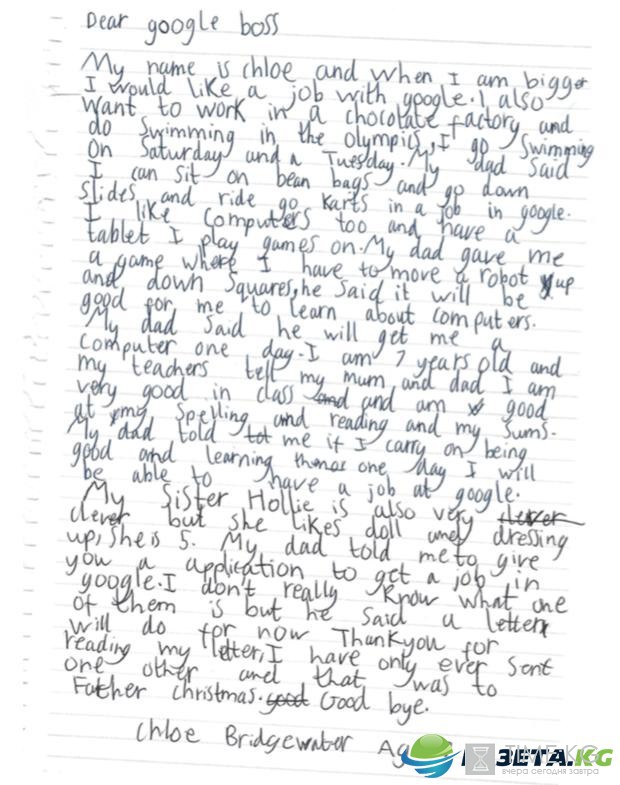 Dear google boss
My name is chloe and when I am bigger
I would like a job with google. I also
want to work in a chocolate factory and
do Swimming in the olympics, I go Swimming
On Saturday and a Tuesday. My dad said
I can sit on bean bags and go down
slides and ride go karts in a job in google.
I like computers too and have a
tablet I play games on. My dad gave me
a game where I have to move a robot up
and down squares, he said it will be
good for me to learn about computers.
My dad said he will get me a
computer one day. I am 7 years old and
my teachers tell my mum and dad I am
very good in class and and am good
at my spelling and reading and my sums.
My dad told me if I carry on being
good and learning one day I will
be able to have a job at google.
My Sister Hollie is also very clever
clever but she likes doll and dressing
up, She is 5. My dad told me to give
you a application to get a job in
google. I don't really know what one
of them is but he said a letter
will do for now Thankyou for
reading my letter, I have only ever sent
one other and that was to
Father christmas. good Good bye.
Chloe Bridgewater
TIME.KG
ЗЕТА.KG
вчера сегодня завтра